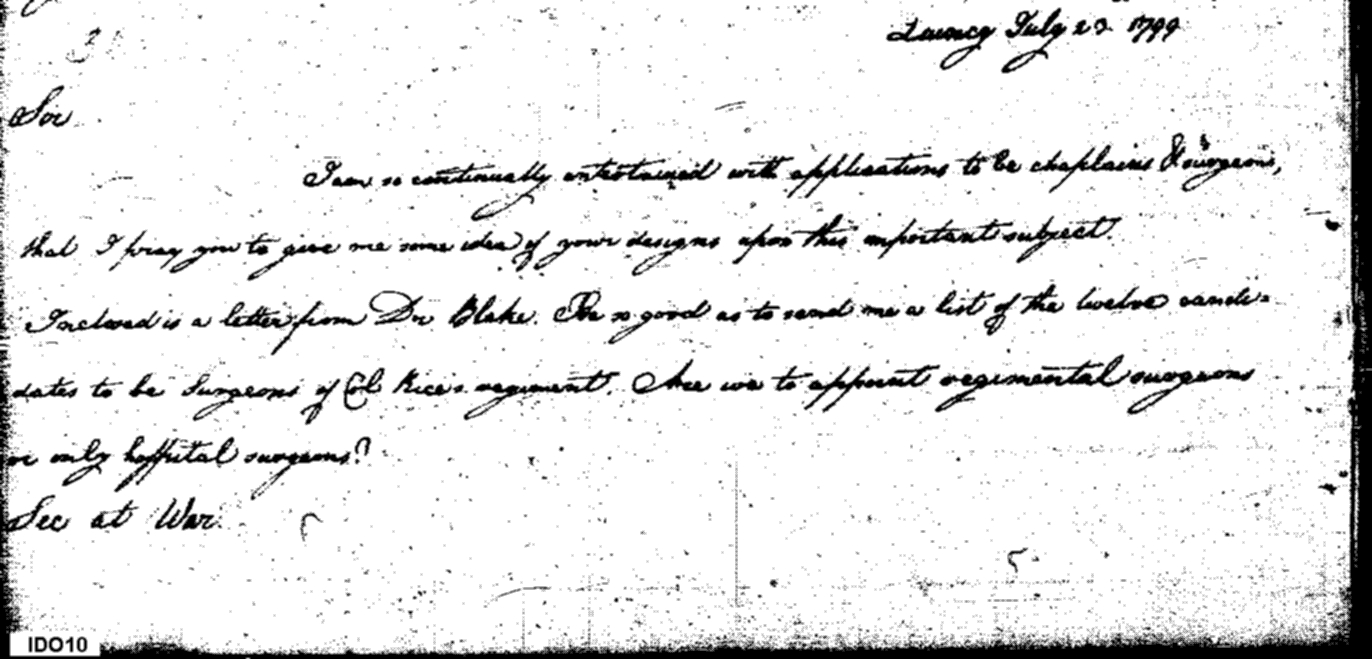 Quincy July 23 1799
Sir
I am so continually entertained with applications to be chaplains & surgeons,
that I pray you to give me some idea of your designs upon this important subject.
Inclosed is a letter from Dr Blake. Be so good as to send me a list of the twelve candi=
dates to be Surgeons of Col Rices regiment. Are we to appoint regimental surgeons
or only hospital surgeons?
Sec at War.
IDO10